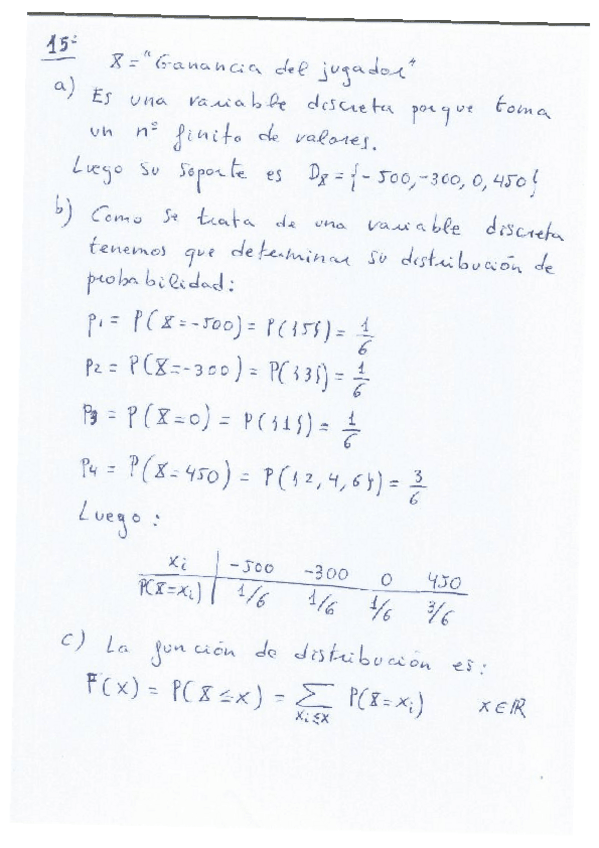 15:
X = "Ganancia del jugador"
a) Es una variable discreta porque toma
un nº finito de valores.
Luego su soporte es Dx = {-500, -300, 0, 450}
b) Como se trata de una variable discreta
tenemos que determinar su distribución de
probabilidad:
p1 = P(X=-500) = P({5}) = 1/6
p2 = P(X=-300) = P({3}) = 1/6
p3 = P(X=0) = P({1}) = 1/6
p4 = P(X=450) = P({2,4,6}) = 3/6
Luego:
xi | -500 -300 0 450
P(X=xi) | 1/6 1/6 1/6 3/6
c) La función de distribución es:
F(x) = P(X ≤ x) = Σ xi≤x P(X=xi) x∈ℝ